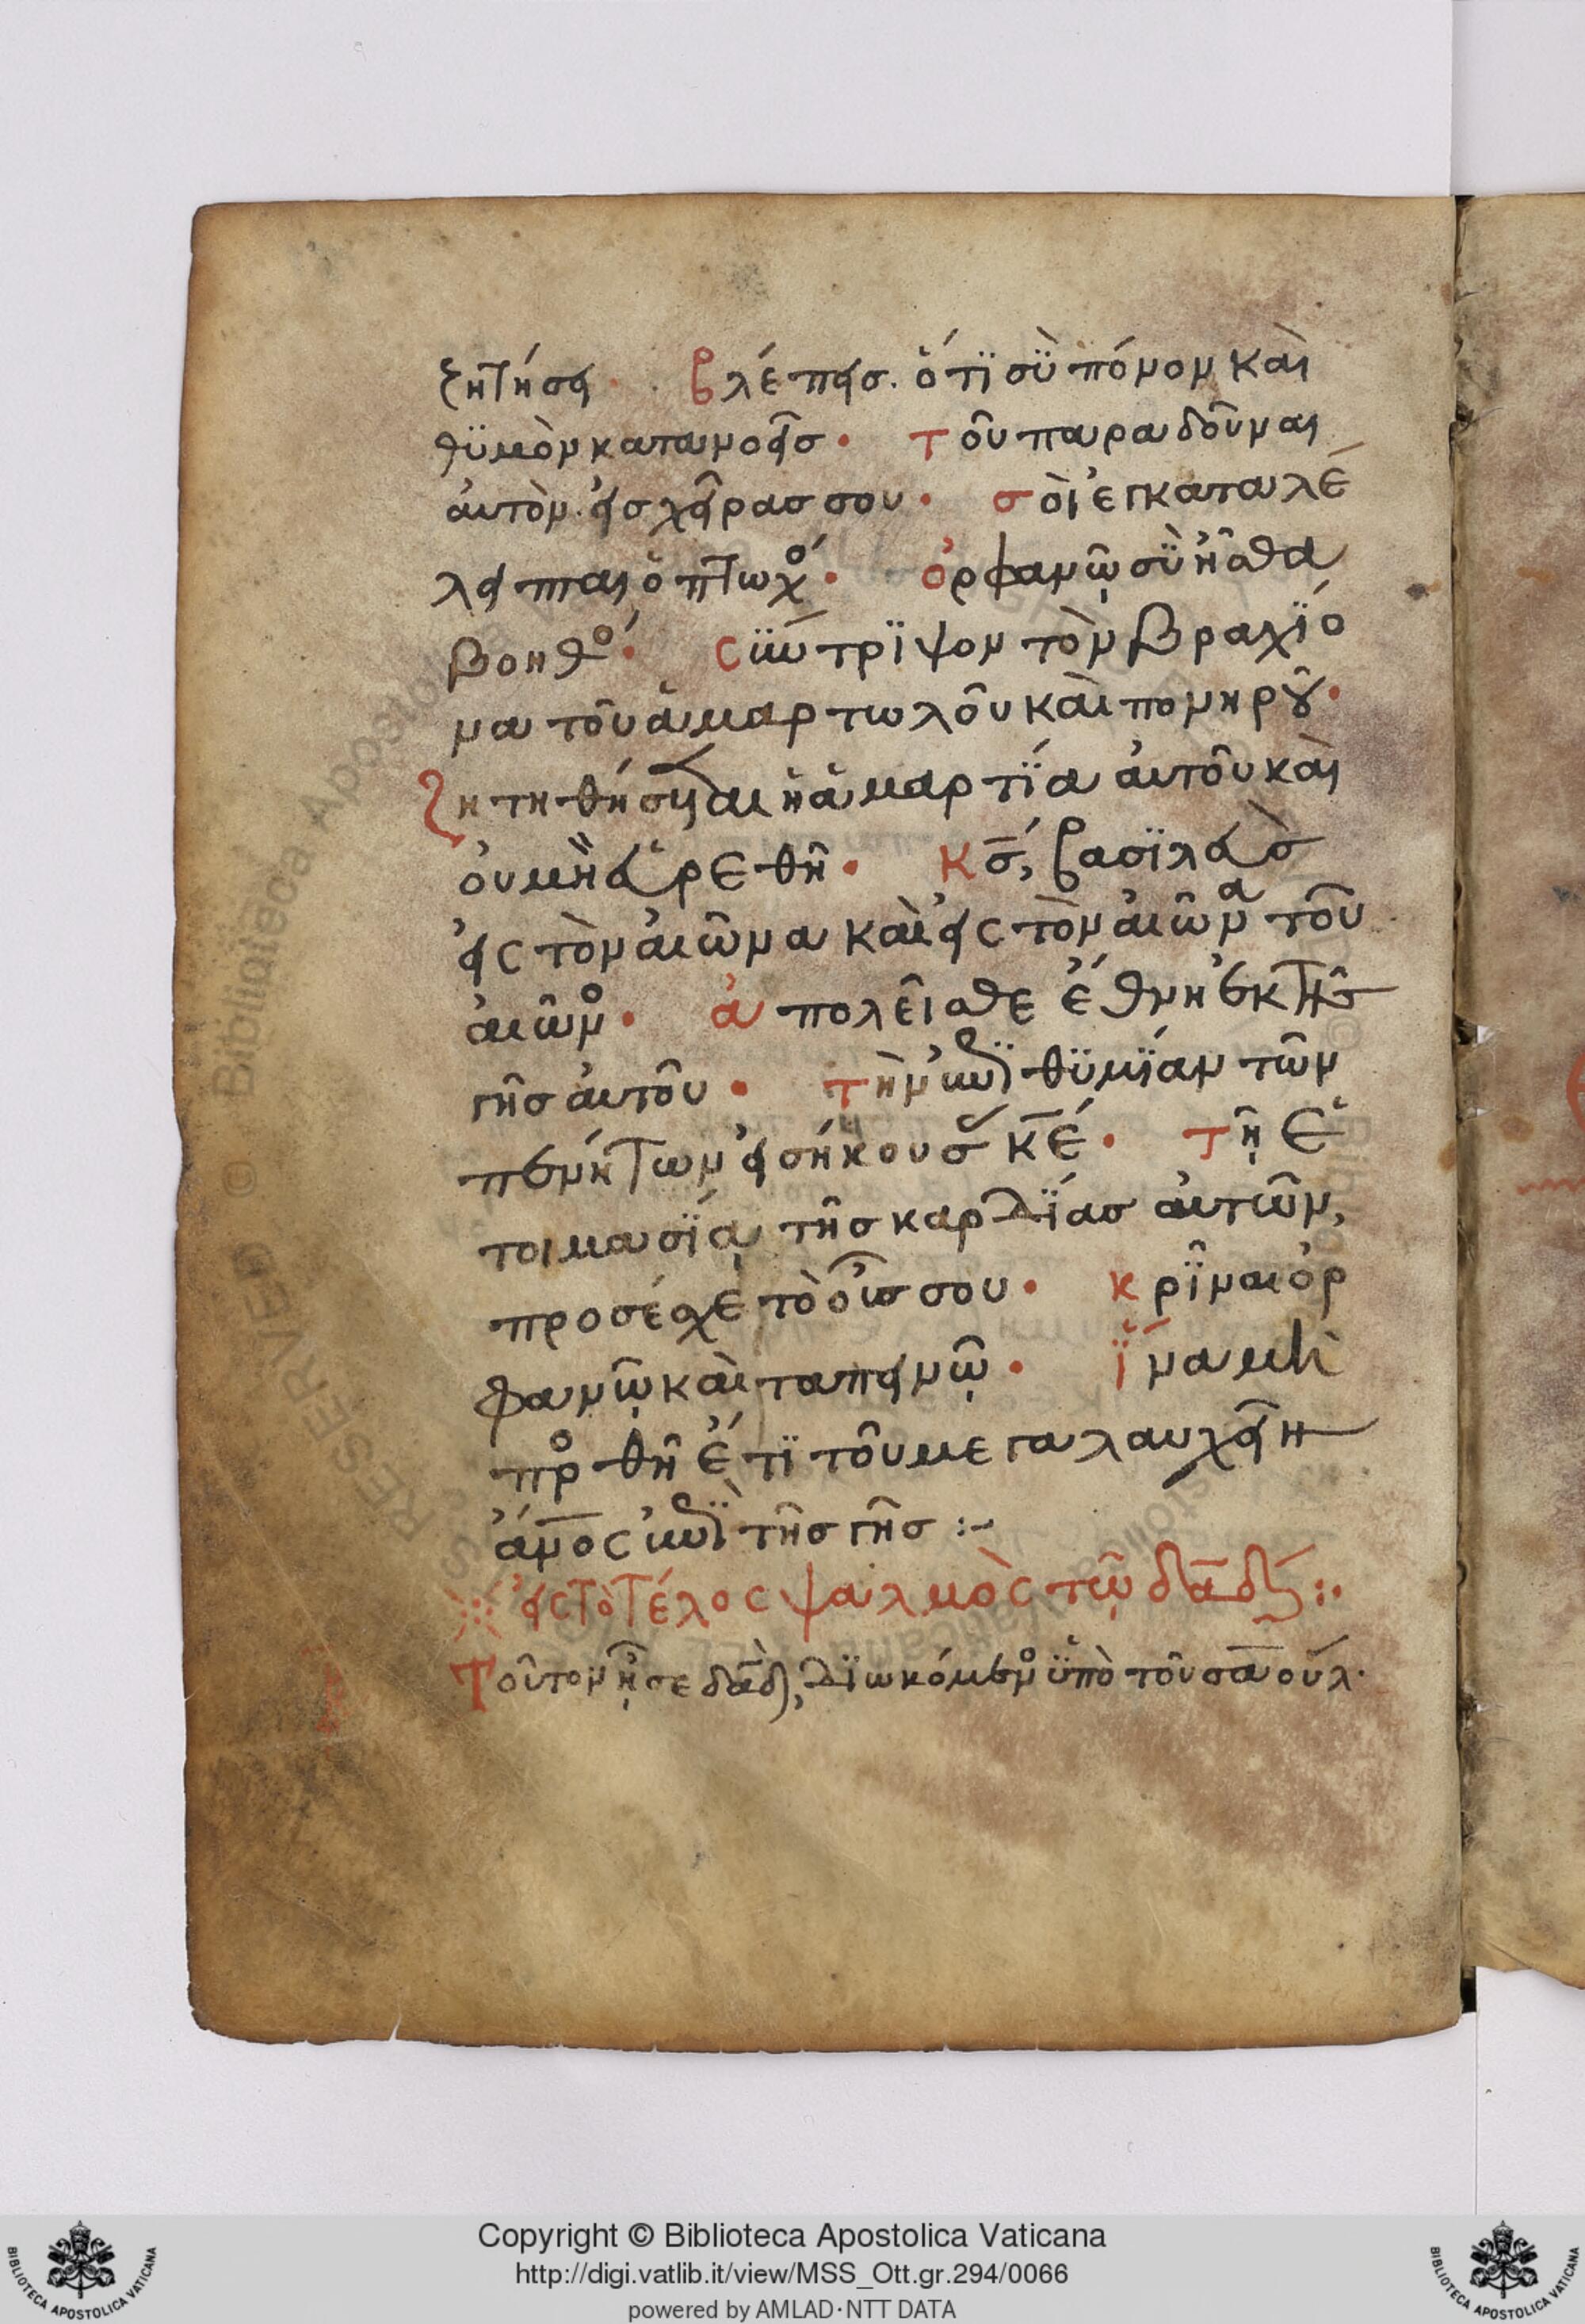 ζητήσει· βλέπεισ. ὅτϊ σῢ πόνον καὶ
θϋμὸν κατανοεῖσ· τοῦ παραδοῦναι
ἀυτὸν. ἐισ χεῖρασ σου· σὸι ἐγκαταλέ
λειπται ὁ πτωχό· ὀρφανῷ σῢ ἦσθα
βοηθό· σϋντρϊψον τὸν βραχϊό
να τοῦ ἁμαρτωλοῦ καὶ πονηροῦ·
ζητηθήσεται ἡ ἁμαρτΐα ἀυτοῦ καὶ
ὀυ μὴ ἑυρεθῆ· κσ, βασϊλεὺσ
ἐις τὸν ἀιῶνα καὶ ἐις τὸν ἀιῶνα τοῦ
ἀιῶνο· ἀπολεῖσθε ἔθνη ἐκ τῆσ
γῆσ ἀυτοῦ· τὴν ἐπϊθϋμΐαν τῶν
πενήτων ἐισήκουσασ κε· τῇ ἑ
τοιμασΐᾳ τῆσ καρδΐασ ἀυτῶν,
προσέχε τὸ ὀῦσ σου· κρῖναι ὀρ
φανῷ καὶ ταπεινῷ· ἵνα μὴ
προθῆ ἔτϊ τοῦ μεγαλαυχεῖν
ἄνος ἐπῒ τῆσ γῆσ :-
ἐις τὸ τέλος ψαλμὸς τῷ δαδ :·
Τοῦτον ᾖσε δαδ, δϊωκόμενο ὑπὸ τοῦ σαούλ·
Copyright © Biblioteca Apostolica Vaticana
http://digi.vatlib.it/view/MSS_Ott.gr.294/0066
powered by AMLAD·NTT DATA
BIBLIOTECA APOSTOLICA VATICANA
BIBLIOTECA APOSTOLICA VATICANA